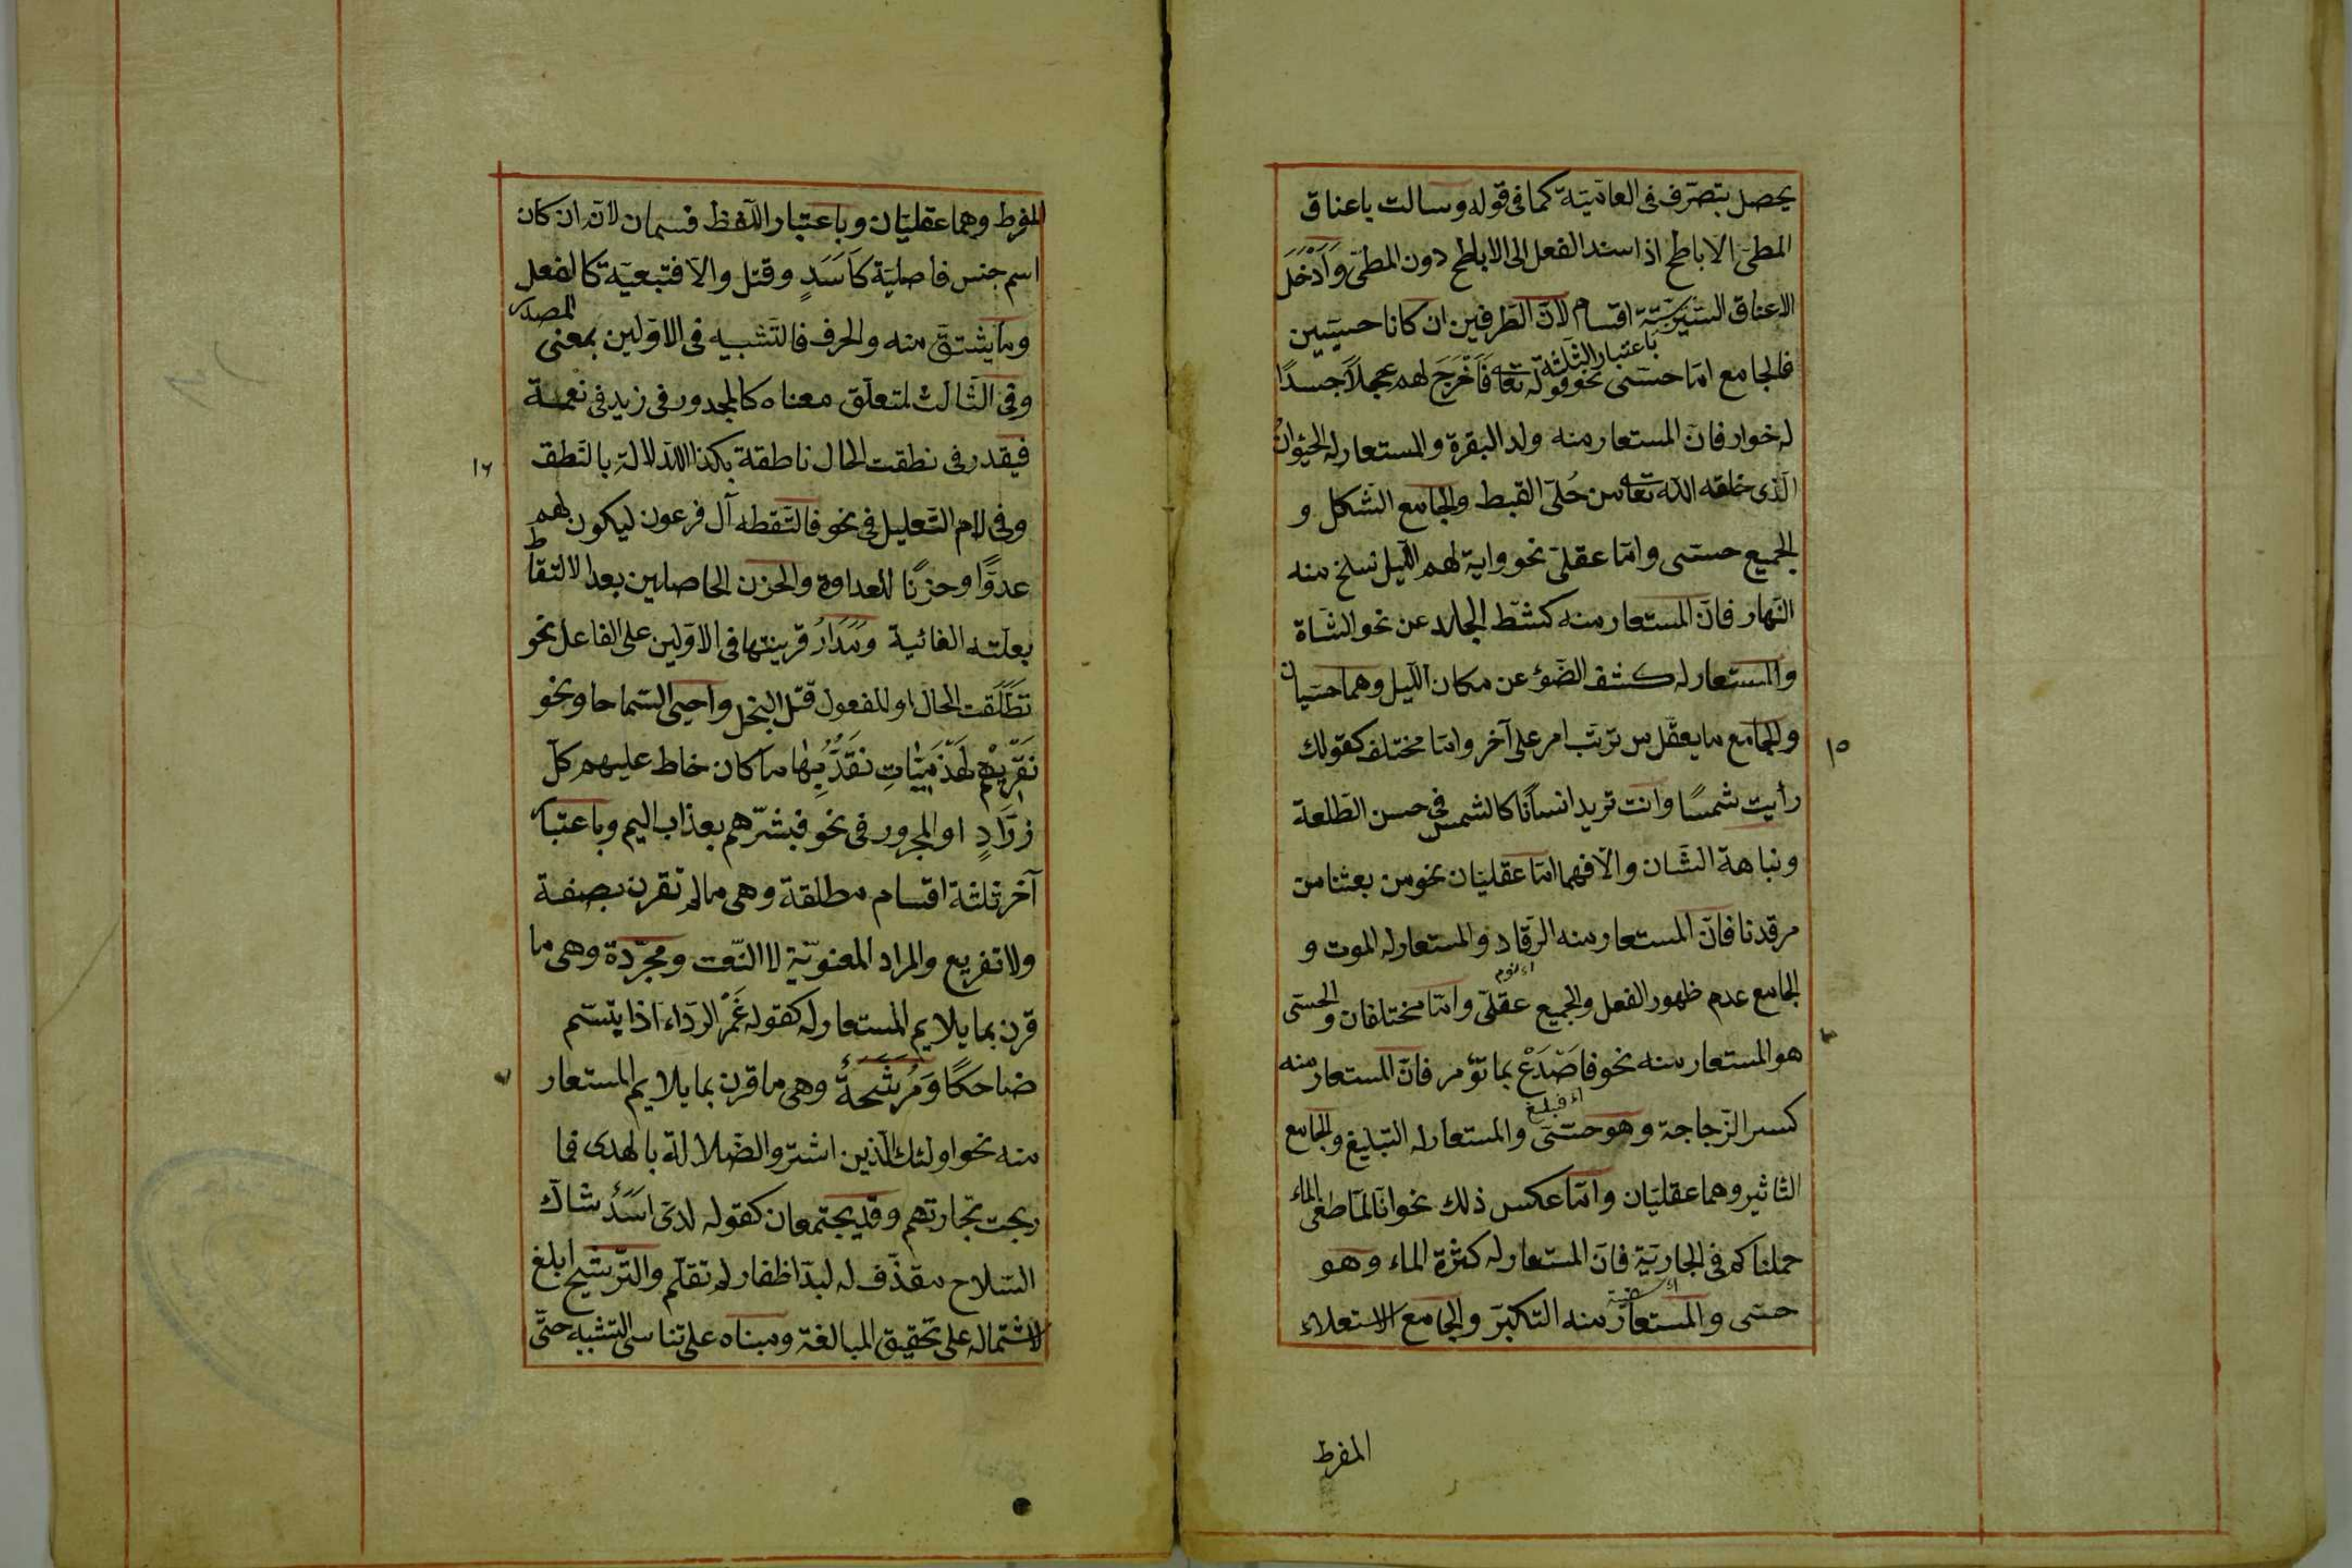 يحصل بتصرّف فى العاميّة كما فى قوله وسالت باعناق
المطىّ الاباطح اذ اسند الفعل الى الاباطح دون المطىّ وَاَدْخَلَ
الاعناق السّير ستّة اقسام لانّ الطّرفين ان كانا حسيّين
باعتبار الثلثة
فالجامع امّا حسّى نحو قوله تعا فَاَخْرَجَ لهم عجلاً جسدًا
له خوار فانّ المستعار منه ولد البقرة والمستعار له الحيوان
الّذى خلقه الله تعا من حُلىّ القبط والجامع الشّكل و
الجميع حسّى وامّا عقلىّ نحو واية لهم اللّيل نسلخ منه
النّهار فانّ المستعار منه كشط الجلد عن نحو الشّاة
والمستعار له كشف الضّوء عن مكان اللّيل وهما حسّيان
والجامع ما يعقل من ترتّب امر على آخر وامّا مختلف كقولك
١٥
رأيت شمسًا وانت تريد انسانًا كالشمس فى حسن الطّلعة
ونباهة الشّان والّا فهما امّا عقليّان نحو من بعثنا من
مرقدنا فانّ المستعار منه الرّقاد والمستعار له الموت و
الجامع عدم ظهور الفعل والجميع عقلىّ وامّا مختلفان والحسّى
هو المستعار منه نحو فاصْدَعْ بما تؤمر فانّ المستعار منه
اى فبلغ
كسر الزّجاجة وهو حسّى والمستعار له التبليغ والجامع
التاثير وهما عقليّان وامّا عكس ذلك نحو انّا لمّا طغى الماء
حملناكم فى الجارية فانّ المستعار له كثرة الماء وهو
حسّى والمستعار منه التكبّر والجامع الاستعلاء
المفرط
المفرط وهما عقليّان وباعتبار اللّفظ قسمان لانّه ان كان
اسم جنس فاصليّة كاَسَدٍ وقتل والّا فتبعيّة كالفعل
وما يشتقّ منه والحرف فالتّشبيه فى الاوّلين بمعنى المصدر
وفى الثّالث لمتعلّق معناه كالمجرور فى زيد فى نعمة
فيقدر فى نطقت الحال ناطقة بكذا للدّلالة بالنّطق
١٦
وفى لام التّعليل فى نحو فالتقطه آل فرعون ليكون لهم
عدوًّا وحزنًا للعداوة والحزن الحاصلين بعد الالتقاط
بعلّته الغائية وَمَدَارُ قرينتها فى الاوّلين على الفاعل نحو
نَطَقَت الحال او المفعول قتل البخل واحيى السّماحا ونحو
نَقْرِيْهم لَهْذَمِيّاتٍ نَقُدُّ بِهَا ما كان خاط عليهم كلّ
زرّادٍ او المجرور فى نحو فبشّرهم بعذاب اليم وباعتبار
آخر ثلثة اقسام مطلقة وهى ما لم تقرن بصفة
ولا تفريع والمراد المعنويّة لا النّعت ومجرّدة وهى ما
قرن بما يلايم المستعار له كقوله غَمْر الرّداء اذا تبسّم
ضاحكًا وَمُرَشَّحَةٌ وهى ما قرن بما يلايم المستعار
منه نحو اولئك الّذين اشتروا الضّلالة بالهدى فما
ربحت تجارتهم وقد يجتمعان كقوله لدى اَسَدٍ شاك
السّلاح مقذّف له لبد اظفاره لم تقلّم والتّرشيح ابلغ
لاشتماله على تحقيق المبالغة ومبناه على تناسى التشبيه حتّى